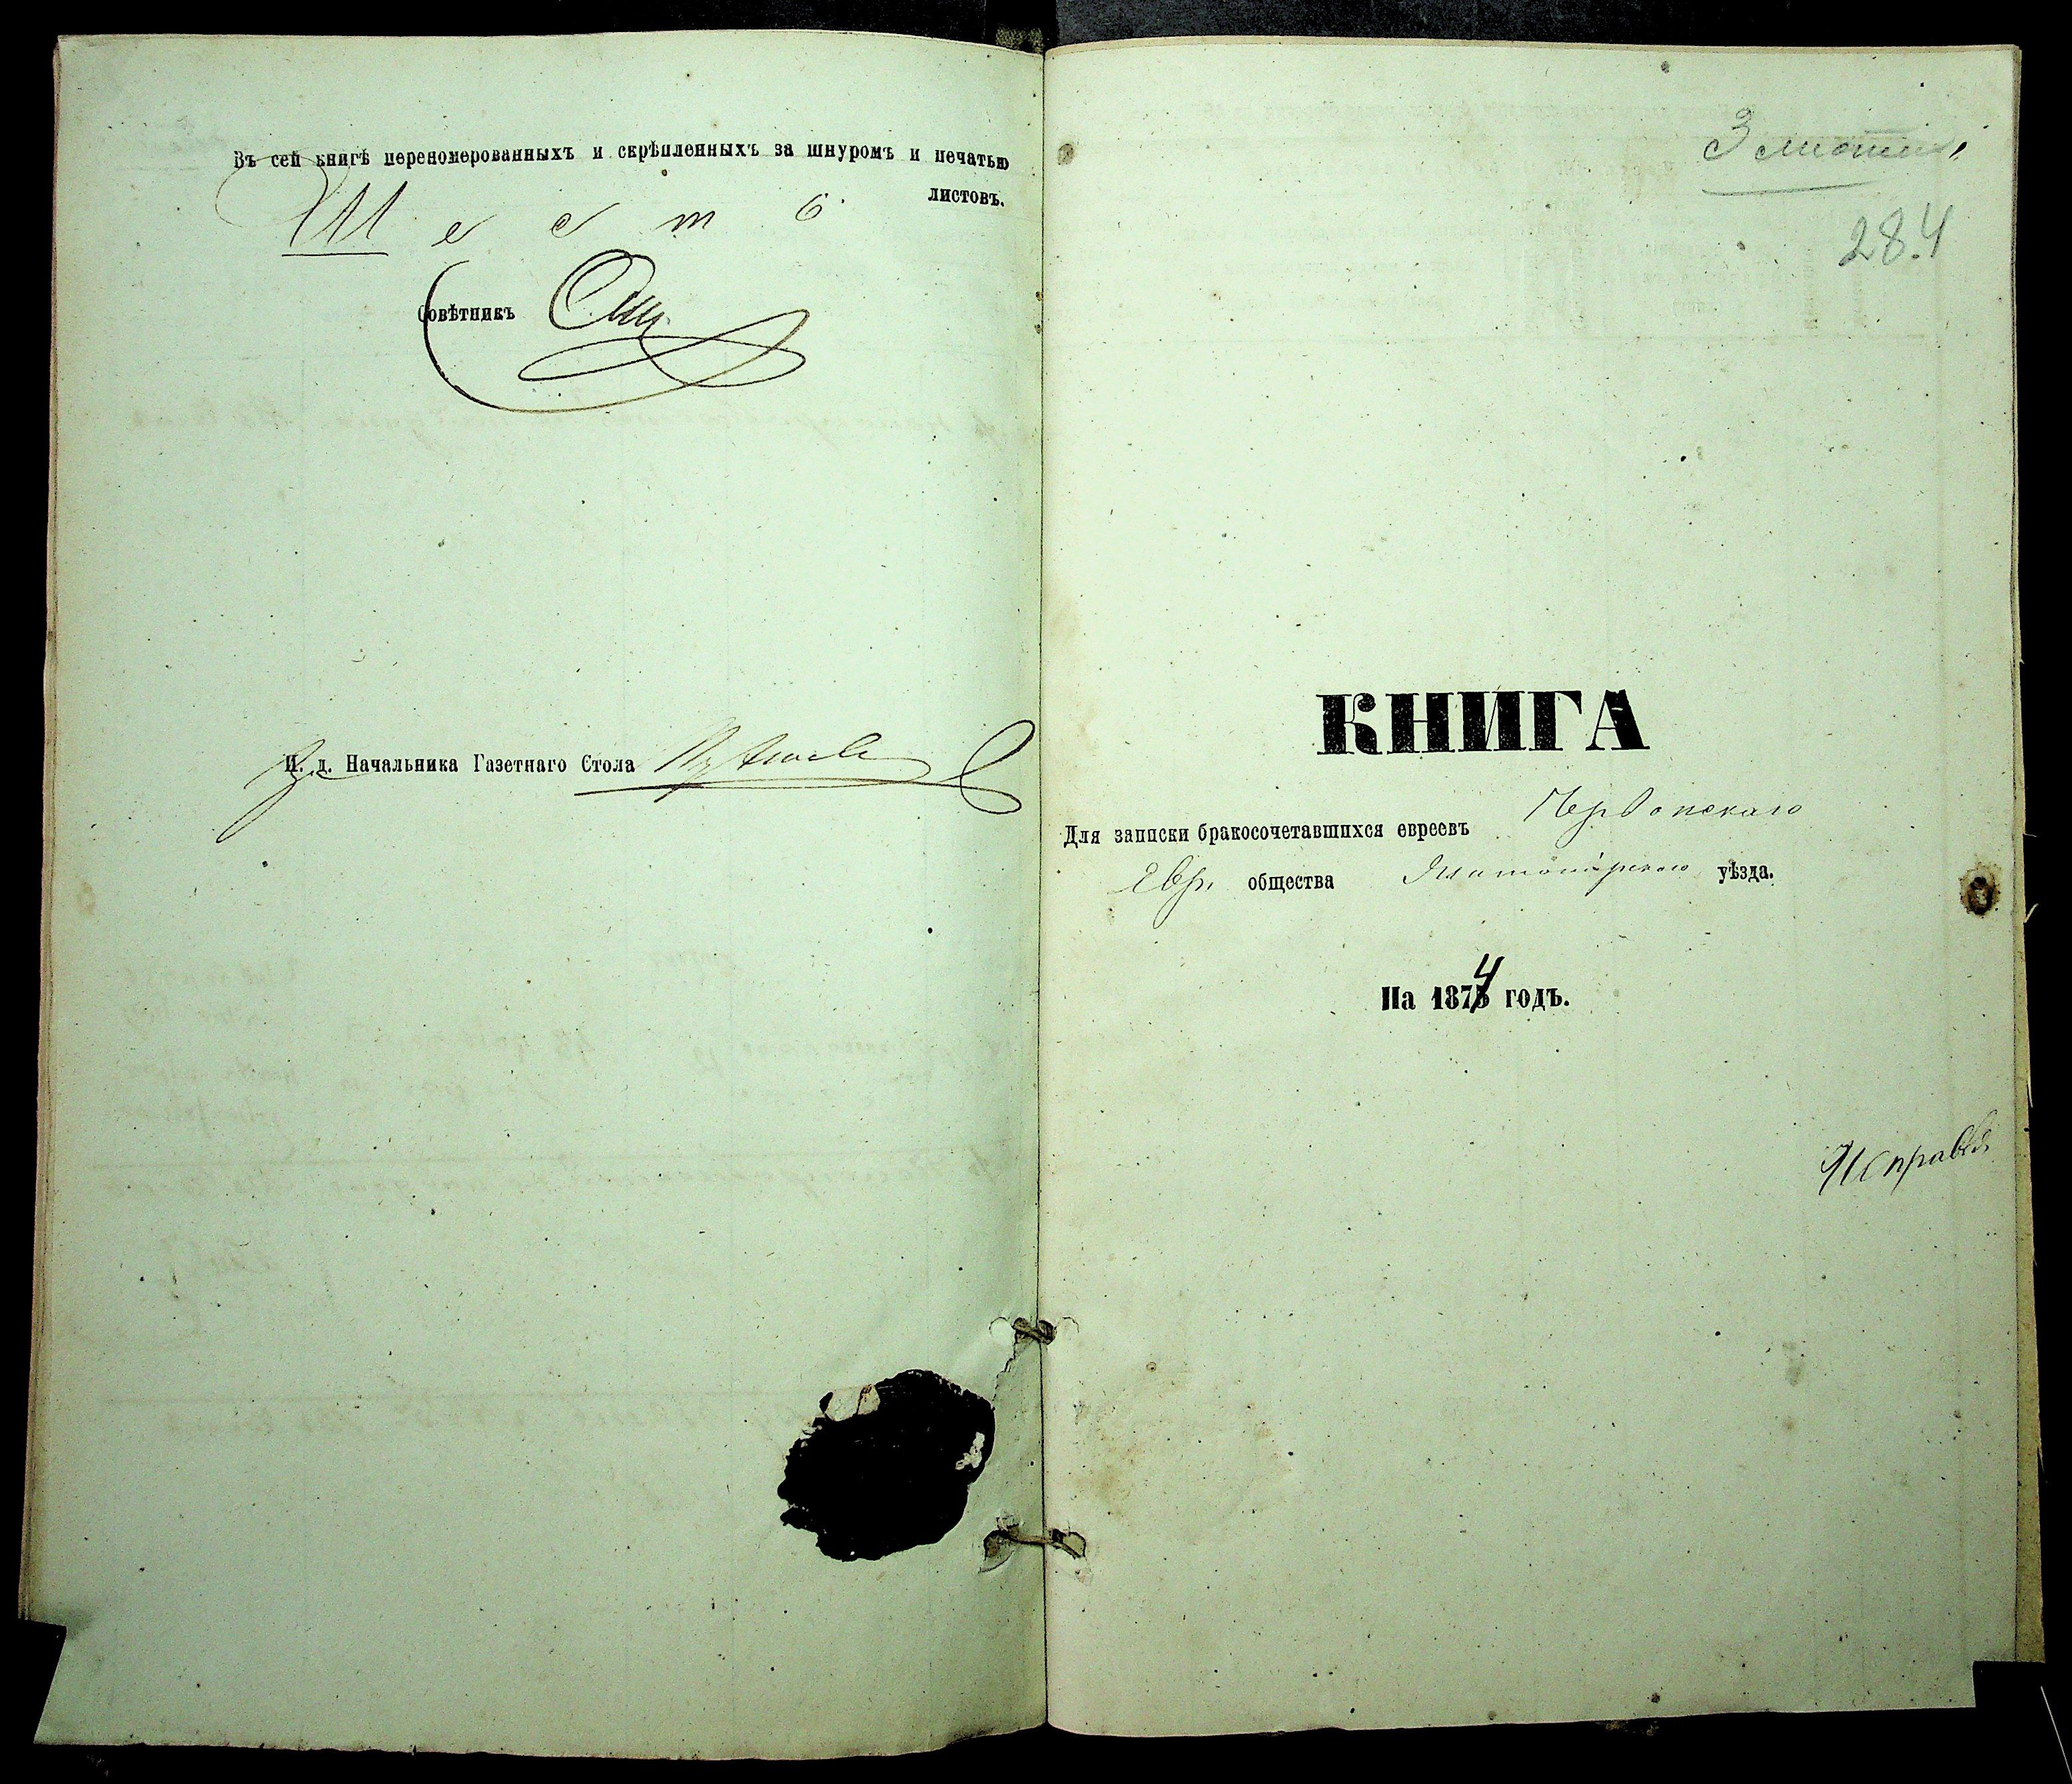 Въ сей книгѣ переномерованныхъ и скрѣпленныхъ за шнуромъ и печатью
Шесть листовъ.
Совѣтникъ
И. д. Начальника Газетнаго Стола
284
КНИГА
Для записки бракосочетавшихся евреевъ
Евр. общества Житомірскаго уѣзда.
На 1874 годъ.